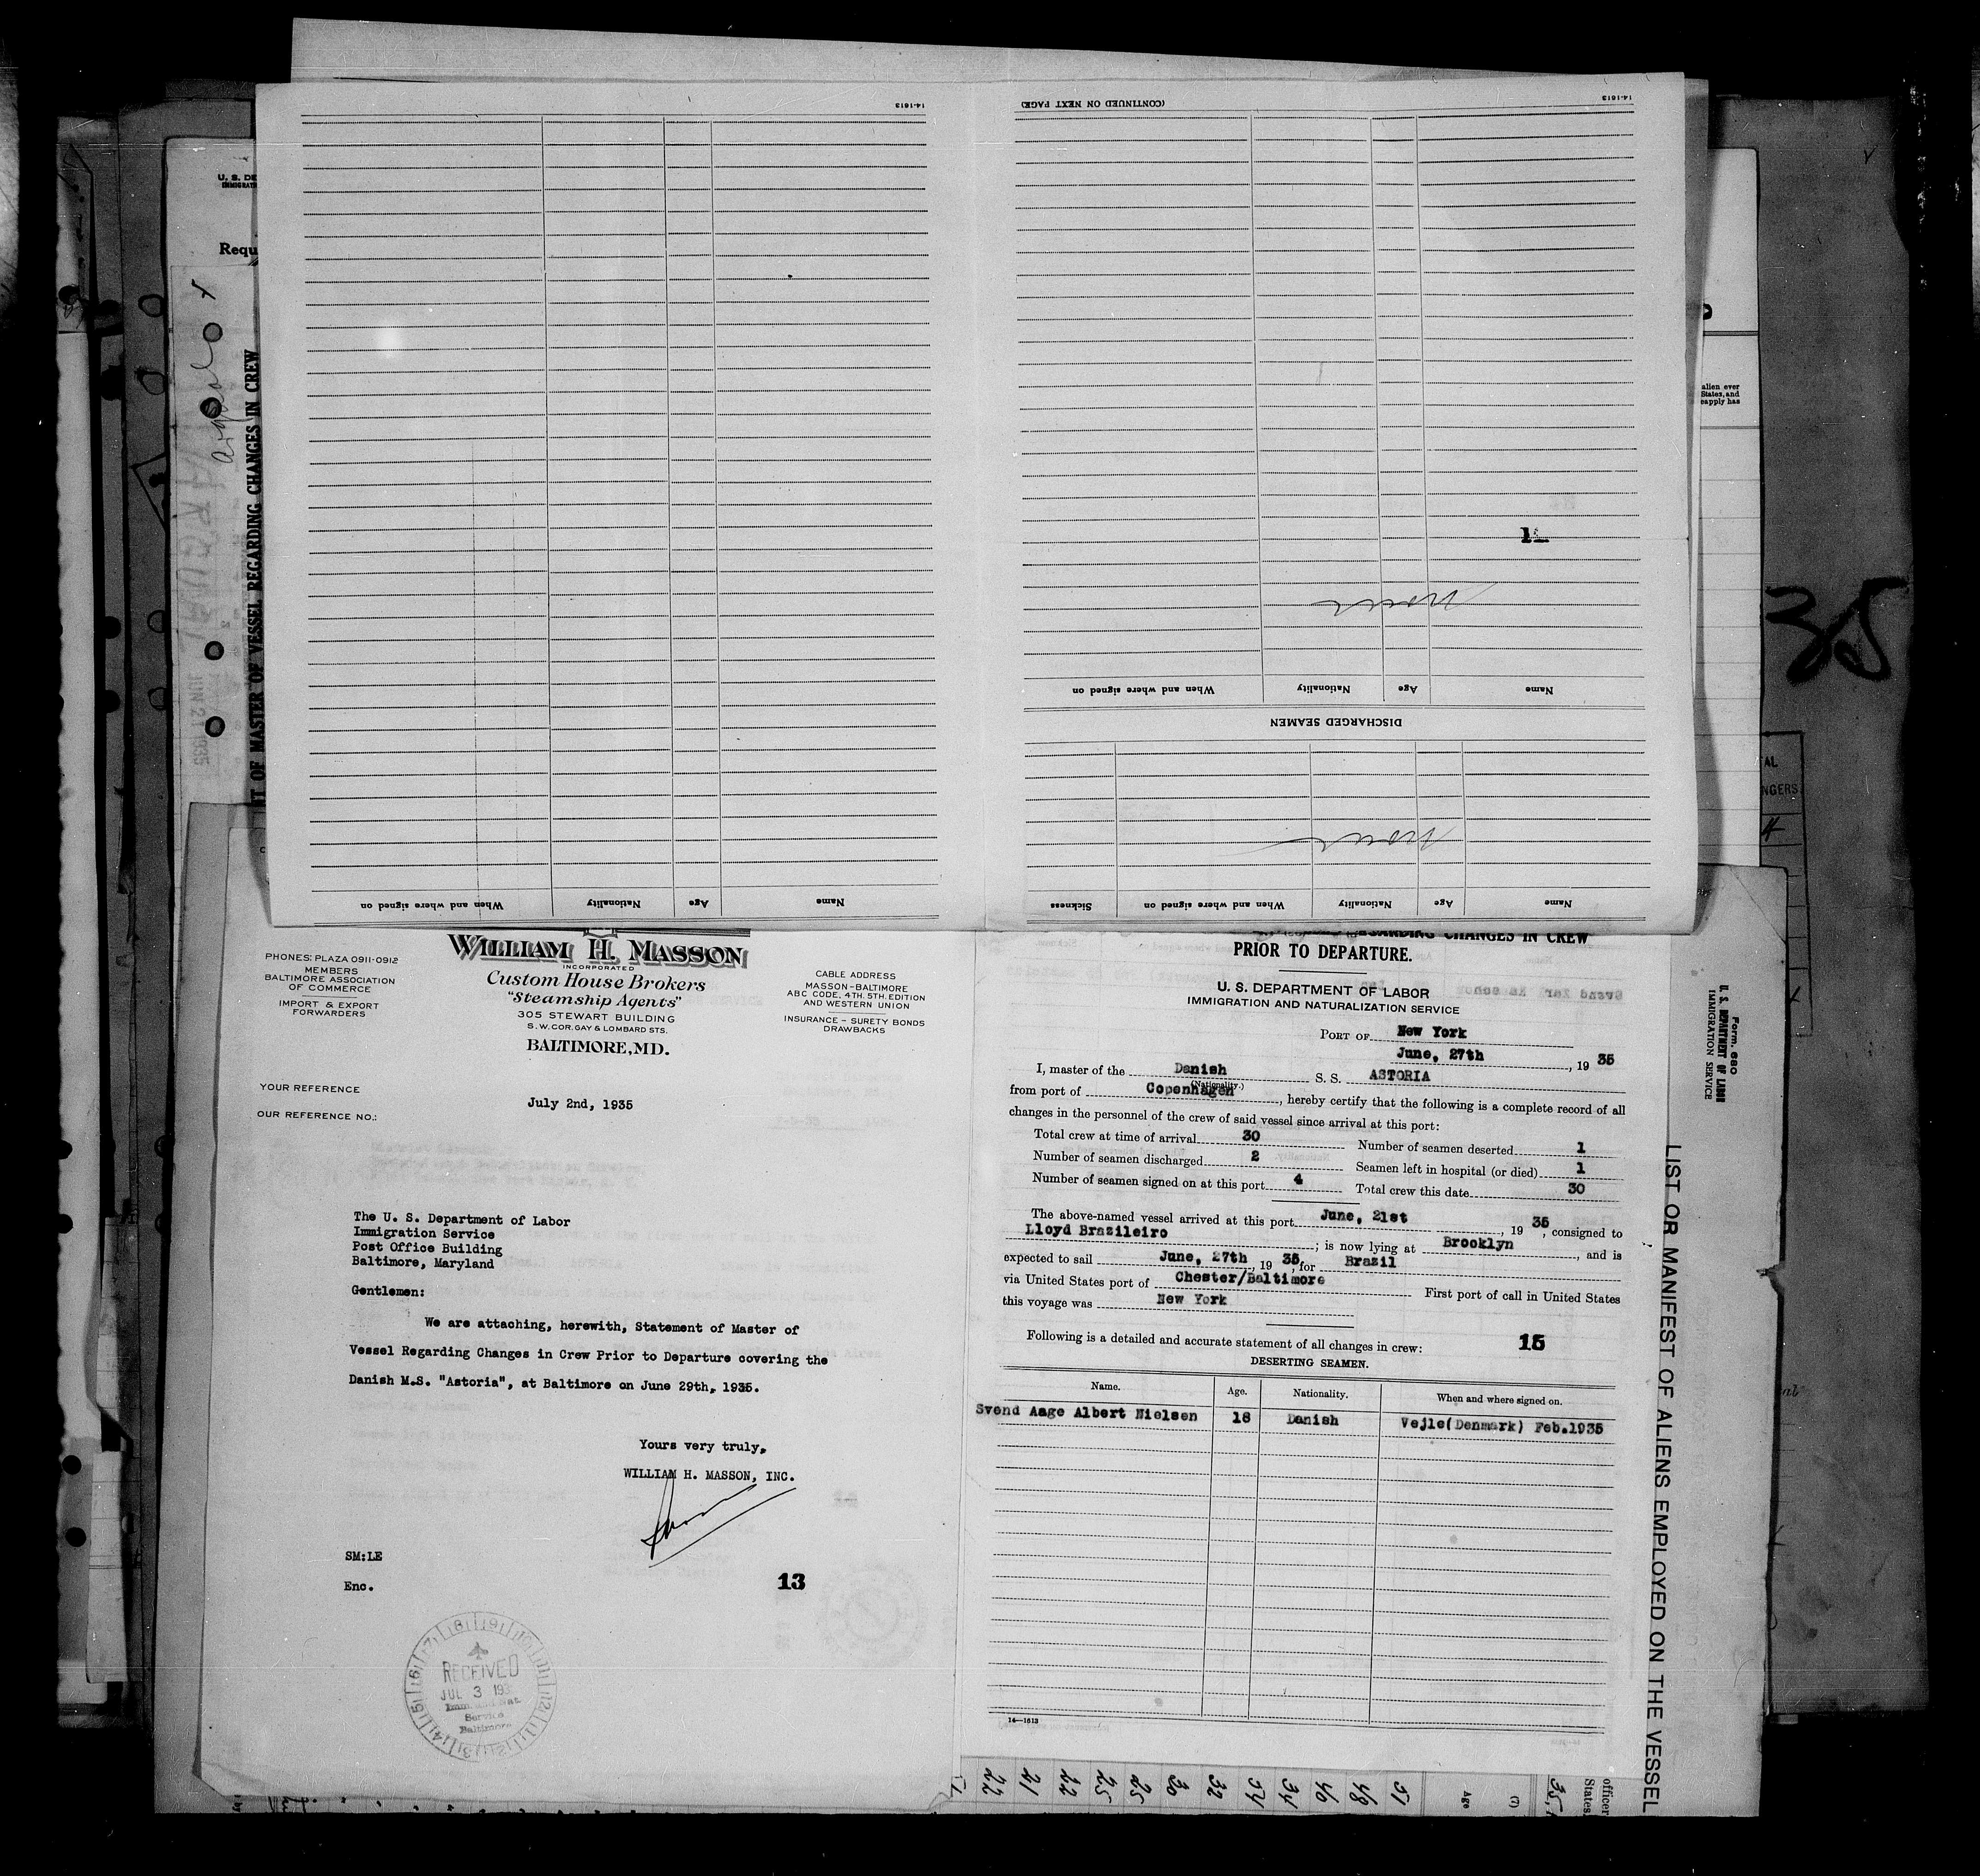 14-1613
(CONTINUED ON NEXT PAGE)
14-1613
None
When and where signed on
Nationality
Age
Name
DISCHARGED SEAMEN
None
When and where signed on
Nationality
Age
Name
Sickness
When and where signed on
Nationality
Age
Name
U. S. DE
IMMIGRAT
Requ
T OF MASTER OF VESSEL REGARDING CHANGES IN CREW
JUN 21 1935
alien ever
States, and
eapply has
35
AL
NGERS
PHONES: PLAZA 0911-0912
MEMBERS
BALTIMORE ASSOCIATION
OF COMMERCE
IMPORT & EXPORT
FORWARDERS
WILLIAM H. MASSON
INCORPORATED
Custom House Brokers
"Steamship Agents"
305 STEWART BUILDING
S. W. COR. GAY & LOMBARD STS.
BALTIMORE, MD.
CABLE ADDRESS
MASSON-BALTIMORE
ABC CODE, 4TH, 5TH, EDITION
AND WESTERN UNION
INSURANCE - SURETY BONDS
DRAWBACKS
YOUR REFERENCE
OUR REFERENCE NO.:
July 2nd, 1935
The U. S. Department of Labor
Immigration Service
Post Office Building
Baltimore, Maryland
Gentlemen:
We are attaching, herewith, Statement of Master of
Vessel Regarding Changes in Crew Prior to Departure covering the
Danish M.S. "Astoria", at Baltimore on June 29th, 1935.
Yours very truly,
WILLIAM H. MASSON, INC.
SM:LE
Enc.
13
RECEIVED
JUL 3 193
Imm. and Nat.
Service
Baltimore
REGARDING CHANGES IN CREW
PRIOR TO DEPARTURE.
U. S. DEPARTMENT OF LABOR
IMMIGRATION AND NATURALIZATION SERVICE
PORT OF New York
June, 27th, 19 35
I, master of the Danish S. S. ASTORIA
(Nationality.)
from port of Copenhagen, hereby certify that the following is a complete record of all
changes in the personnel of the crew of said vessel since arrival at this port:
Total crew at time of arrival 30 Number of seamen deserted 1
Number of seamen discharged 2 Seamen left in hospital (or died) 1
Number of seamen signed on at this port 4 Total crew this date 30
The above-named vessel arrived at this port June, 21st, 19 35, consigned to
Lloyd Brazileiro; is now lying at Brooklyn, and is
expected to sail June, 27th, 19 35, for Brazil
via United States port of Chester/Baltimore First port of call in United States
this voyage was New York
Following is a detailed and accurate statement of all changes in crew: 15
DESERTING SEAMEN.
Name. Age. Nationality. When and where signed on.
Svend Aage Albert Nielsen 18 Danish Vejle(Denmark) Feb.1935
14—1613
Form 680
U. S. DEPARTMENT OF LABOR
IMMIGRATION SERVICE
LIST OR MANIFEST OF ALIENS EMPLOYED ON THE VESSEL
22
21
22
25
25
30
32
54
34
46
48
51
Age
(7)
35,
officer
States,